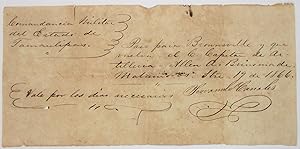 Comandancia Militar
del Estado de
Tamaulipas.
Pase para Brownsville y que
vuelva el C. Capitan de Ar-
tilleria Allen A.
Matamoros Stre 19 de 1866.
Servando Canales
Vale por los dias necesarios